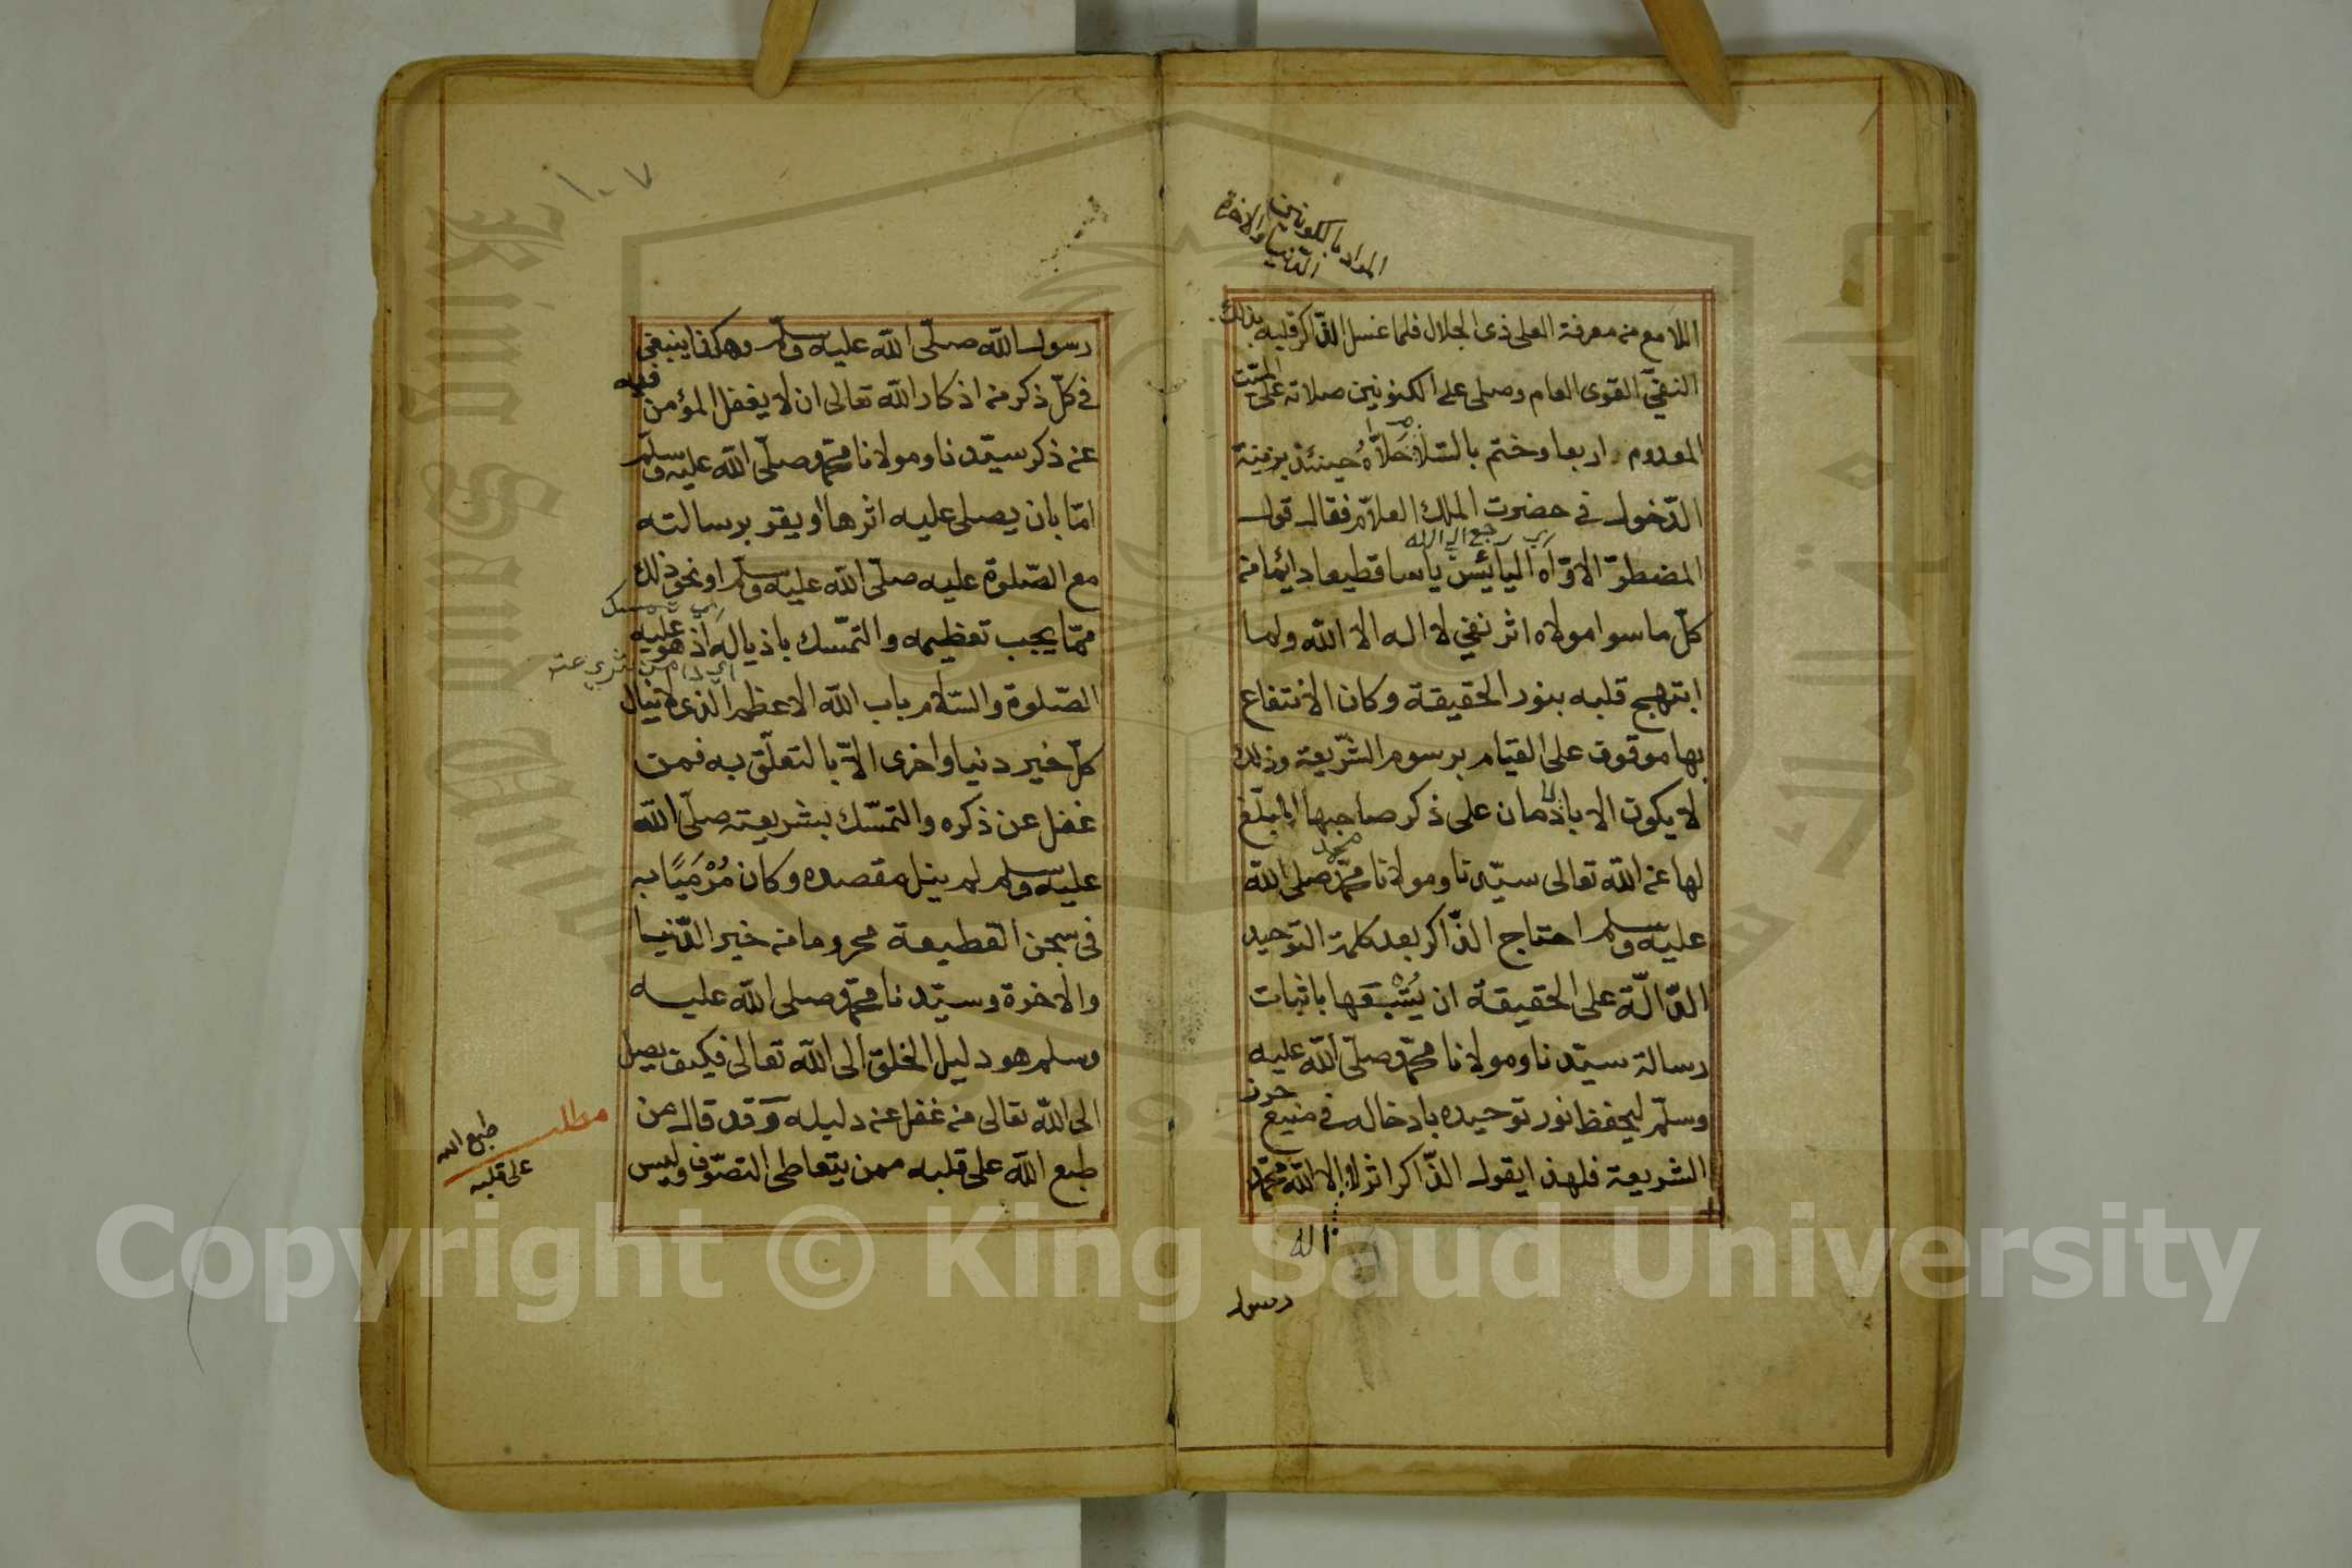 المراد بالكونين
الدنيا والاخرة
اللامع من معرفة العلى ذى الجلال فلما غسل الذّاكر قلبه بذلك
النفىّ القوى العام وصلى على الكونين صلاته على الميّت
المعدوم اربعا وختم بالسّلام حَلاّهُ حينئذ بزينة
الدّخول فى حضرت الملك العلاّم فقال قول
اي رجع الي الله
المضطرّ الاوّاه اليائس ياسا قطيعا دائما من
كلّ ما سوا مولاه اثر نفي لا اله الا الله ولما
ابتهج قلبه بنور الحقيقة وكان الانتفاع
بها موقوف على القيام برسوم الشّريعة وذلك
لا يكون الا باذمان على ذكر صاحبها المبلّغ
محمد
لها عن الله تعالى سيّدنا ومولانا محمّد صلى الله
عليه وسلم احتاج الذّاكر بعد كلمة التوحيد
الدّالّة على الحقيقة ان يُتْبعَها باثبات
رسالة سيّدنا ومولانا محمّد صلّى الله عليه
وسلّم ليحفظ نور توحيده بادخاله فى منيع حرز
الشريعة فلهذا يقول الذّاكر اثر لا اله الا الله محمّد
اله
رسول
١٠٧
رسول الله صلّى الله عليه وسلّم وهكذا ينبغى
فى كلّ ذكر من اذكار الله تعالى ان لا يغفل المؤمن فيه
عن ذكر سيّدنا ومولانا محمّد صلّى الله عليه وسلّم
امّا بان يصلى عليه اثرها او يقر برسالته
مع الصّلوة عليه صلّى الله عليه وسلّم او نحو ذلك
ممّا يجب تعظيمه والتمّسك باذياله اذ هو عليه
الصّلوة والسّلام باب الله الاعظم الذى لا ينال
كلّ خير دنيا واخرى الاّ بالتعلّق به فمن
غفل عن ذكره والتمسّك بشريعته صلّى الله
عليه وسلم لم ينل مقصده وكان مُرْمَيًا به
فى سجن القطيعة محروما من خير الدّنيا
والاخرة وسيّدنا محمّد صلى الله عليه
وسلم هو دليل الخلق الى الله تعالى فكيف يصل
الى الله تعالى من غفل عن دليله وقد قال من
طبع الله على قلبه ممن يتعاطى التصوّف وليس
مطلب
طبع الله
على قلبه